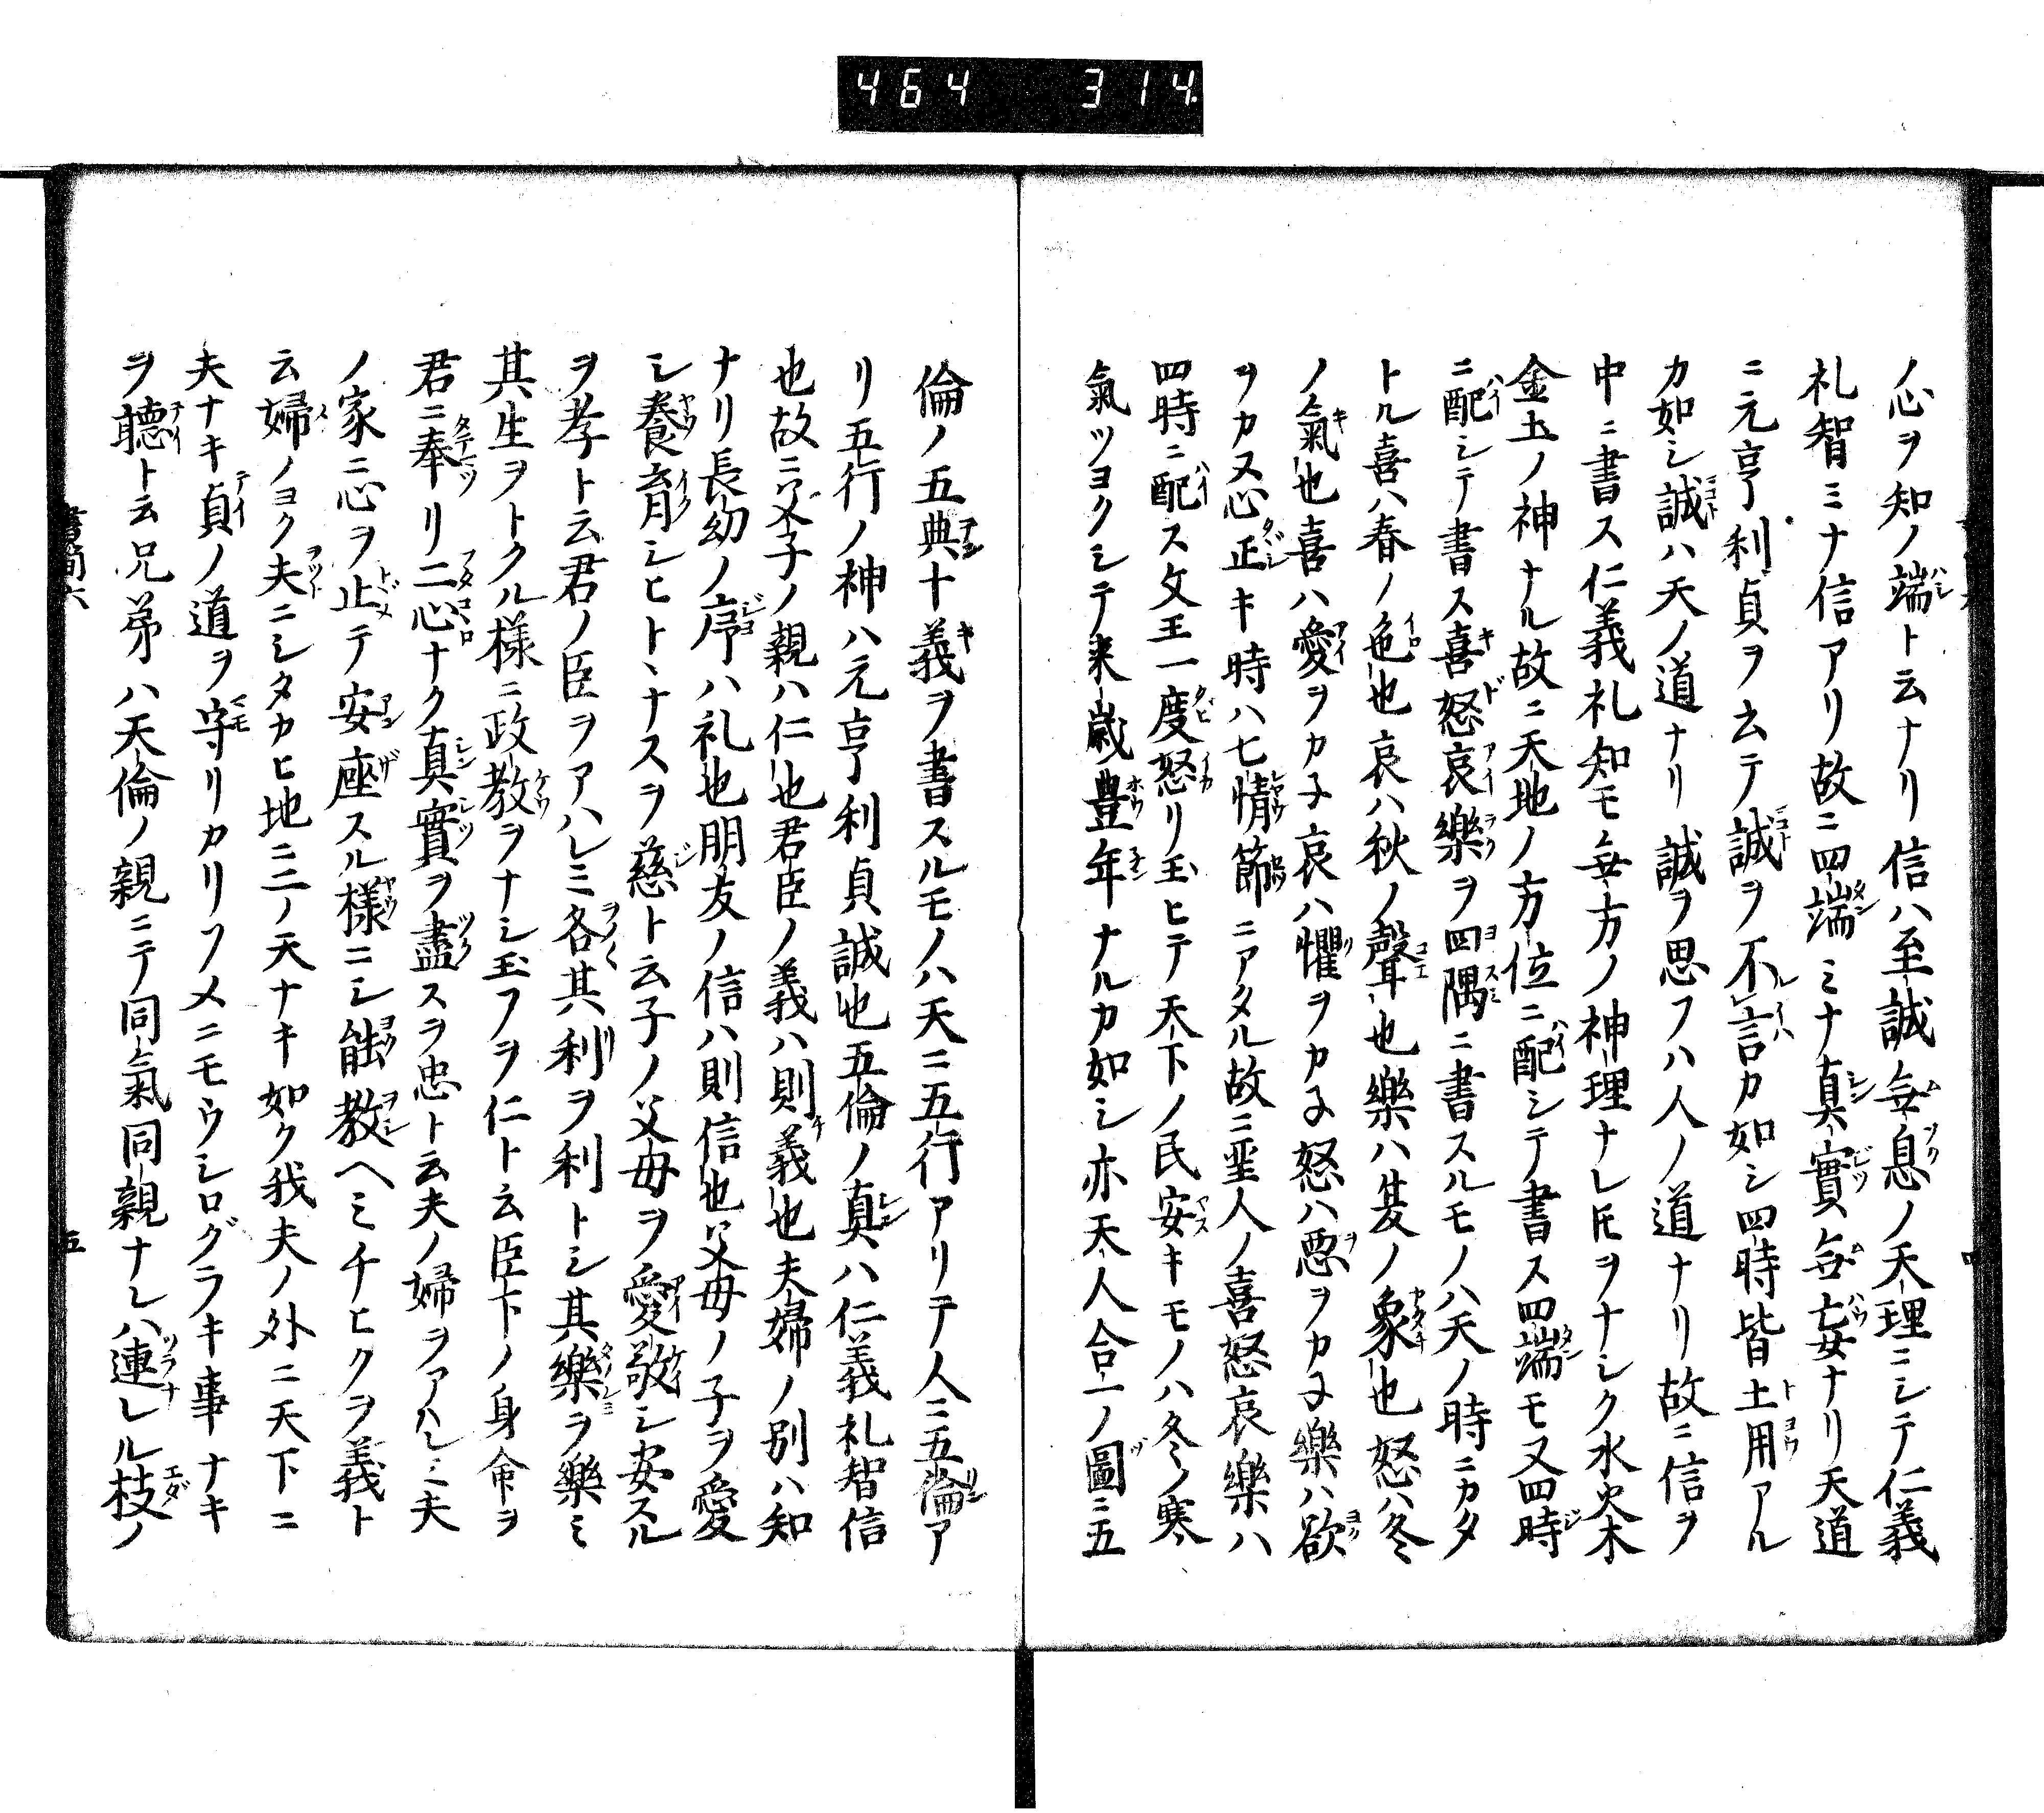 464 314
ノ心ヲ知ノ端ト云ナリ信ハ至誠無息ノ天理ニシテ仁義
礼智ミナ信アリ故ニ四端ミナ真實無妄ナリ天道
ニ元亨利貞ヲ云テ誠ヲ不言カ如シ四時皆土用アル
カ如シ誠ハ天ノ道ナリ誠ヲ思フハ人ノ道ナリ故ニ信ヲ
中ニ書ス仁義礼知モ無方ノ神理ナレ𪜈ヲナシク水火木
金土ノ神ナル故ニ天地ノ方位ニ配シテ書ス四端モ又四時
ニ配シテ書ス喜怒哀樂ヲ四隅ニ書スルモノハ天ノ時ニカタ
トル喜ハ春ノ色也哀ハ秋ノ聲也樂ハ夏ノ象也怒ハ冬
ノ氣也喜ハ愛ヲカ子哀ハ懼ヲカ子怒ハ悪ヲカ子樂ハ欲
ヲカヌ心正キ時ハ七情節ニアタル故ニ聖人ノ喜怒哀樂ハ
四時ニ配ス文王一度怒リ玉ヒテ天下ノ民安キモノハ冬ノ寒
氣ツヨクシテ来歳豊年ナルカ如シ亦天人合一ノ圖ニ五
倫ノ五典十義ヲ書スルモノハ天ニ五行アリテ人ニ五倫ア
リ五行ノ神ハ元亨利貞誠也五倫ノ真ハ仁義礼智信
也故ニ父子ノ親ハ仁也君臣ノ義ハ則義也夫婦ノ別ハ知
ナリ長幼ノ序ハ礼也朋友ノ信ハ則信也父母ノ子ヲ愛
シ養育シヒトヽナスヲ慈ト云子ノ父母ヲ愛敬シ安スル
ヲ孝ト云君ノ臣ヲアハレミ各其利ヲ利トシ其樂ヲ樂ミ
其生ヲトクル様ニ政教ヲナシ玉フヲ仁ト云臣下ノ身命ヲ
君ニ奉リ二心ナク真實ヲ盡スヲ忠ト云夫ノ婦ヲアハレミ夫
ノ家ニ心ヲ止テ安座スル様ニシ能教ヘミチヒクヲ義ト
云婦ノヨク夫ニシタカヒ地ニ二ノ天ナキ如ク我夫ノ外ニ天下ニ
夫ナキ貞ノ道ヲ守リカリソメニモウシログラキ事ナキ
ヲ聴ト云兄弟ハ天倫ノ親ニテ同氣同親ナレハ連レル枝ノ
書簡六
五